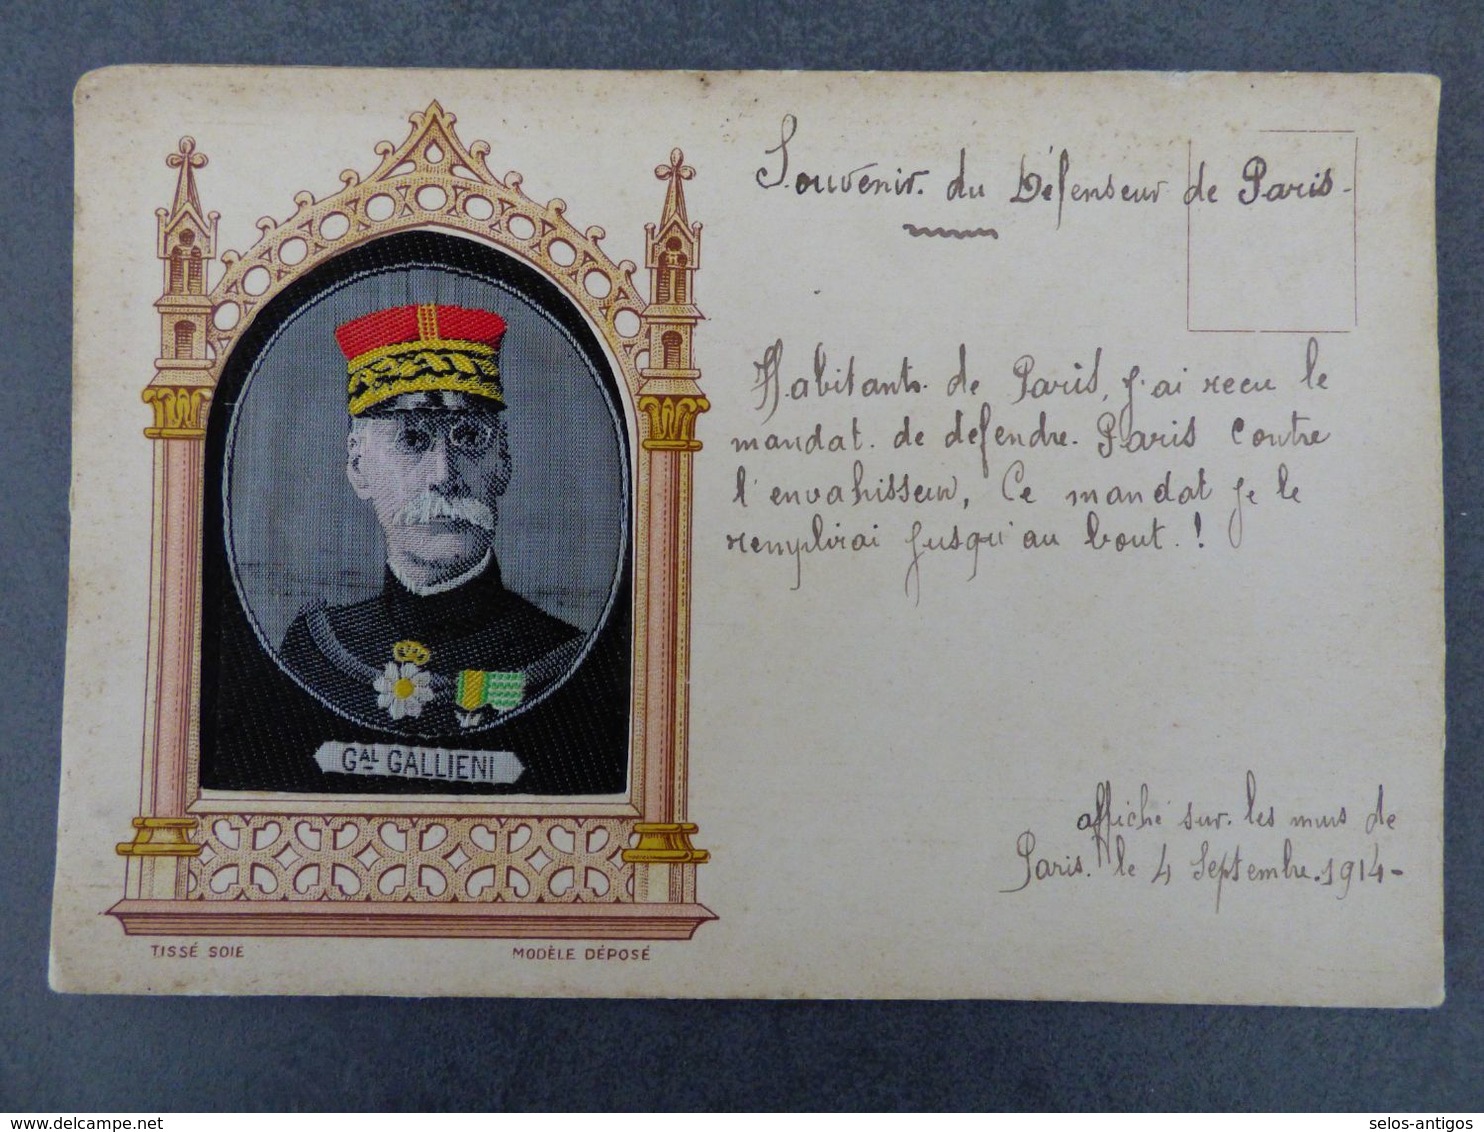 Souvenir du Défenseur de Paris-
Habitants de Paris, j'ai recu le
mandat de défendre Paris contre
l'envahisseur, Ce mandat je le
remplirai jusqu'au bout!
affiché sur les murs de
Paris le 4 Septembre 1914-
GAL GALLIENI
TISSÉ SOIE MODÈLE DÉPOSÉ
selos-antigos